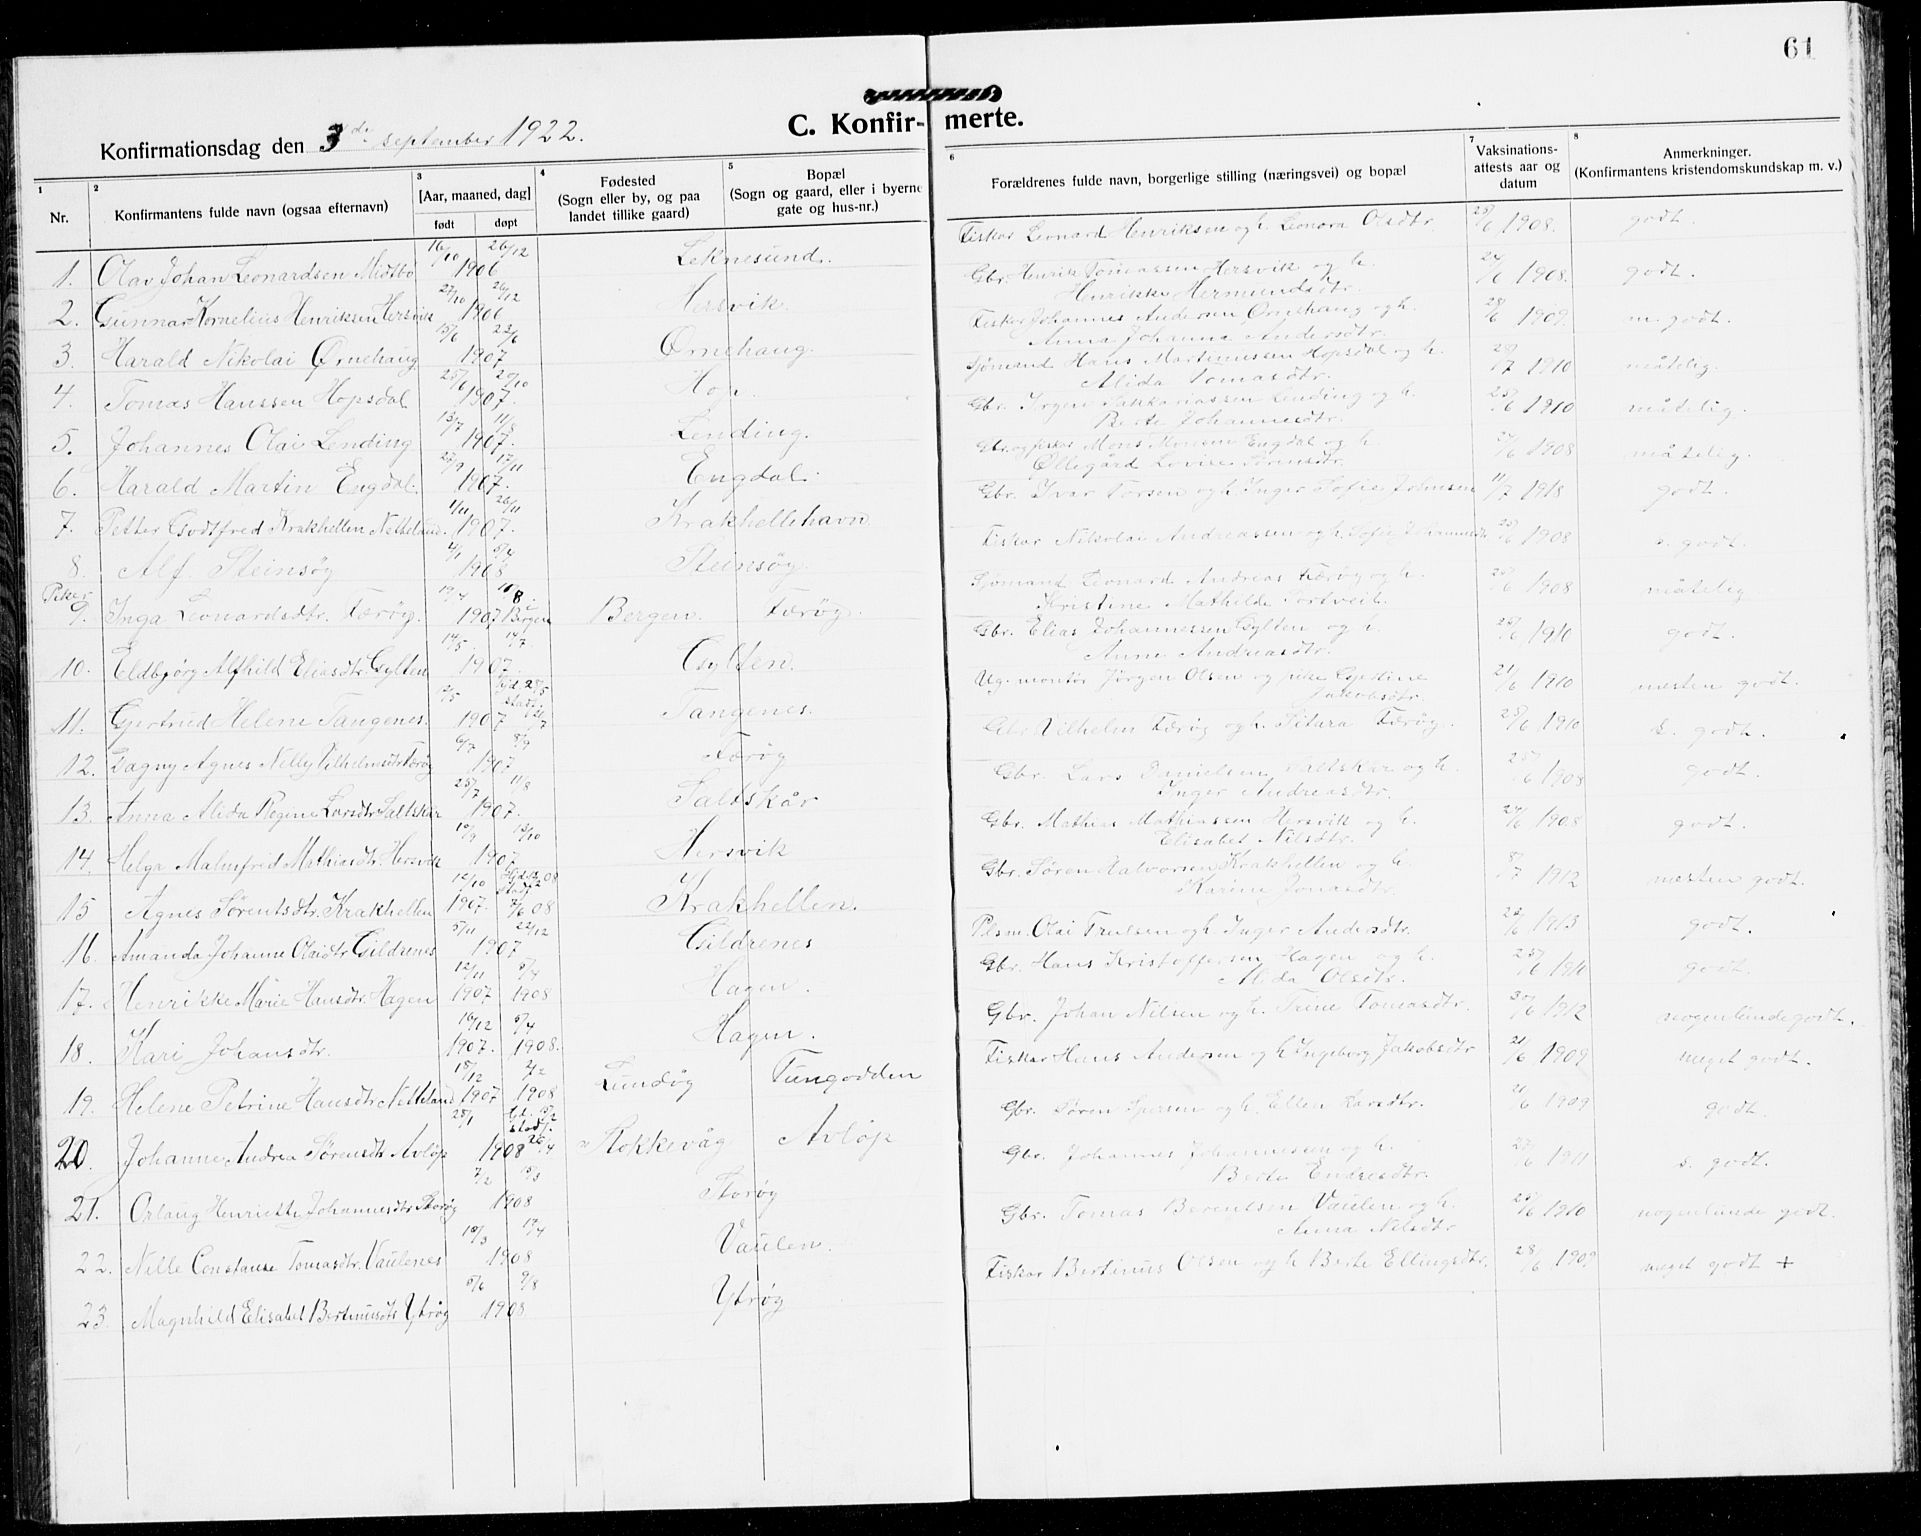 61
C. Konfir- merte.
Konfirmationsdag den 3de september 1922.
1 Nr.
2 Konfirmantens fulde navn (ogsaa efternavn)
3 [Aar, maaned, dag] født døpt
4 Fødested (Sogn eller by, og paa landet tillike gaard)
5 Bopæl (Sogn og gaard, eller i byerne gate og hus-nr.)
6 Forældrenes fulde navn, borgerlige stilling (næringsvei) og bopæl
7 Vaksinations-attests aar og datum
8 Anmerkninger. (Konfirmantens kristendomskundskap m. v.)
1. Olav Johan Leonardsen Midtbö 16/10 26/12 1906 Leknesund. Fisker Leonard Henriksen og h. Leonora Olsdtr. 25/6 1908. godt.
2. Gunnar Kornelius Henriksen Hersvik 27/10 26/12 1906 Hersvik. Gbr. Henrik Tomassen Hersvik og h. Henrikke Hermundsdtr. 24/6 1908. godt.
3. Harald Nikolai Ørnehaug 15/6 23/6 1907 Ørnehaug. Fisker Johannes Andersen Ørnehaug og h. Anna Johanna Andersdtr. 28/6 1909. m. godt.
4. Tomas Hanssen Hopsdal 25/6 20/10 1907. Hop. Sjömand Hans Martinussen Hopsdal og h. Alida Tomasdtr. 1910 måtelig.
5. Johannes Olai Lending 13/7 11/8 1907. Lending. Gbr. Jörgen Sakkariassen Lending og h. Berte Johannesdtr. 25/6 1910 måtelig.
6. Harald Martin Engdal. 27/9 17/11 1907. Engdal. Gbr. og fisker Mons Monsen Engdal og h. Øllegård Lovise Sörensdtr. 27/6 1908 måtelig.
7. Petter Godtfred Krakhellen Netteland. 1/11 26/11 1907. Krakhellehavn Gbr. Ivar Torsen og h. Inger Sofie Johnsen 11/7 1918 godt.
8. Alf Steinsöy 4/1 5/4 1908 Steinsöy. Fisker Nikolai Andreassen og h. Sofie Johannesdtr 25/6 1908 s. godt.
Piker
9. Inga Leonardsdtr. Færöy. 19/4 1907 Bergen Bergen. Færöy. Sjömand Leonard Andreas Færöy og h. Kristine Mathilde Tortveit. 25/6 1908 måtelig
10. Eldbjörg Alfhild Eliasdtr. Gylten 14/5 14/7 1907. Gylten. Gbr. Elias Johannessen Gylten og h. Anne Andreasdtr. 25/6 1910 godt.
11. Gjertrud Helene Tangenes. 1907 Tangenes. Ug. montör Jörgen Olsen og pike Gjertine Jakobsdtr. 21/6 1910 næsten godt.
12. Dagny Agnes Nelly Vilhelmsdtr Færöy 6/7 8/9 1907 Færöy Gbr. Vilhelm Færöy og h. Færöy. 25/6 1910 s. godt.
13. Anna Alida Regine Larsdtr. Saltskår 25/7 11/8 1907. Saltskår Gbr. Lars Danielsen Saltskår og h. Inger Andreasdtr. 25/6 1908 godt.
14. Helga Malmfrid Mathiasdtr. Hersvik 10/9 13/10 1907 Hersvik Gbr. Mathias Mathiassen Hersvik og h. Elisabet Nilsdtr. 24/6 1908 godt.
15 Agnes Sörensdtr. Krakhellen 12/10 1907. 7/6 08 Krakhellen. Gbr. Sören Halvorsen Krakhellen og h. Karine Jonasdtr. 8/7 1912 næsten godt.
16. Amanda Johanne Olaidtr. Gildrenes 5/11 22/12 1907 Gildrenes Olai Trulsen og h. Inger Andersdtr. 1913 godt.
17. Henrikke Marie Hansdtr. Hagen 12/11 1907 5/4 1908 Hagen. Gbr. Hans Kristoffersen Hagen og h. Alida Olsdtr. 25/6 1910 godt.
18. Kari Johansdtr. 16/12 1907. 5/4 1908. Hagen. Gbr. Johan Nilsen og h. Trine Tomasdtr. 30/6 1912 nogenlunde godt.
19. Helene Petrine Hansdtr. Netteland 18/12 1907 2/2 1908 Lundöy Tungodden Fisker Hans Andersen og h Ingeborg Jakobsdtr 21/6 1909 meget godt.
20. Johanne Andrea Sörensdtr Avlöp 28/1 1908 26/4 Stokkevåg Avlöp Gbr. Sören Ipersen og h. Ellen Larsdtr. 21/6 1909 godt.
21. Orlaug Henriette Johannesdtr Storöy 7/2 15/3 1908 Storöy Gbr. Johannes Johannessen og h. Berte Endresdtr. 27/6 1911 s. godt.
22. Nille Constanse Tomasdtr. Vaulenes 10/3 17/4 1908 Vaulen. Gbr. Tomas Berentsen Vaulen og h. Anna Nilsdtr 25/6 1910 nogenlunde godt.
23. Magnhild Elisabet Bertinusdtr Ytröy 5/6 9/8 1908 Ytröy Fisker Bertinus Olsen og h Berte Ellingsdtr. 28/6 1909 meget godt +